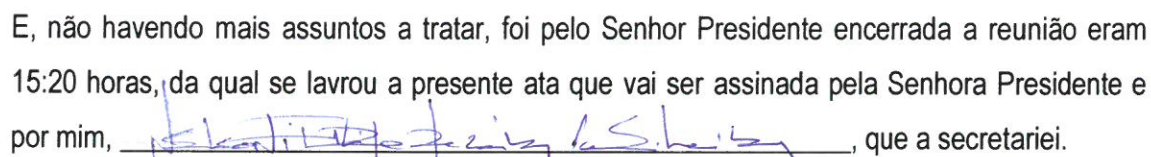 E, não havendo mais assuntos a tratar, foi pelo Senhor Presidente encerrada a reunião eram
15:20 horas, da qual se lavrou a presente ata que vai ser assinada pela Senhora Presidente e
por mim, , que a secretariei.